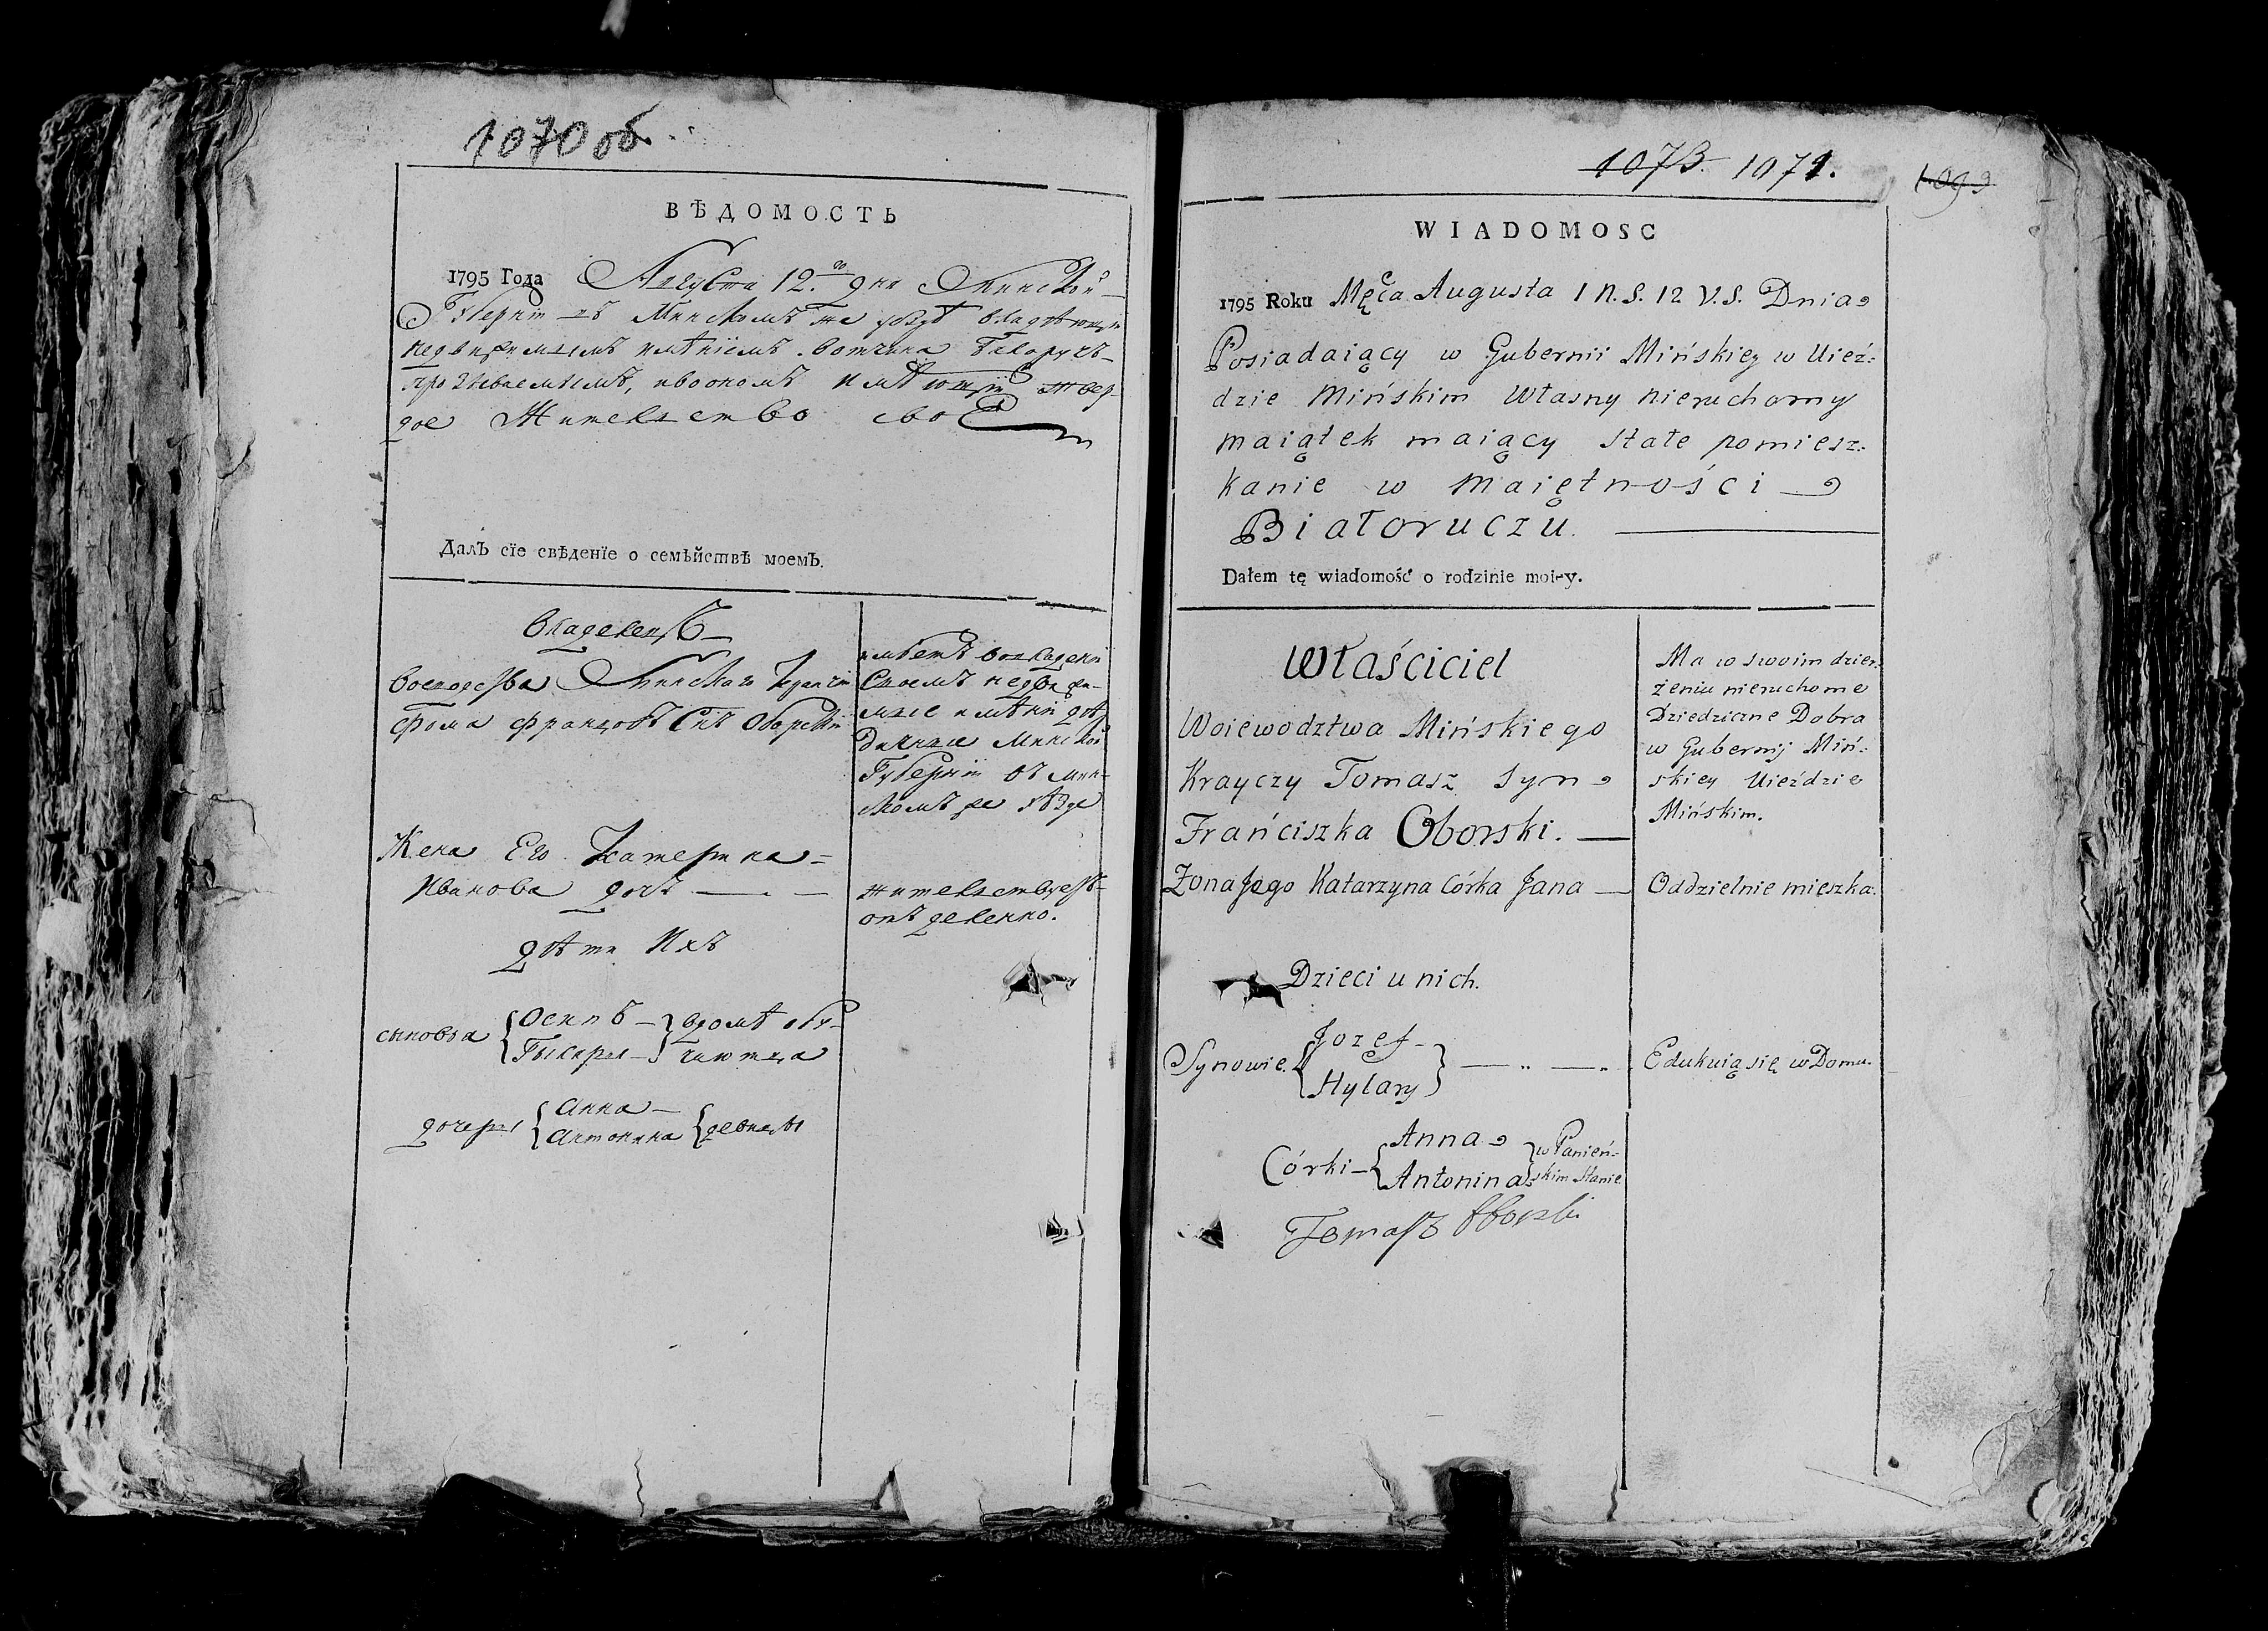 1070 об.
ВѢДОМОСТЬ
1795 Года Августа 12.го дня Минской
Губернїи въ Минскомъ же уѣздѣ владѣющїй
недвижимымъ имѣнїемъ вотчина Белоручъ
прозываемымъ, и во ономъ имѣющїй твер-
дое жительство своё
ДалЪ сїе свѣденїе о семѣйствѣ моемЪ.
Владелецъ
воеводства Минскаго крайчїй
Фома Францовъ Сынъ Оборскїй
имѣетъ во владенїи
своемъ недвижи-
мые имѣнїи дѣ-
дичные Минской
Губернїи въ мин-
скомъ же уѣзде
Жена Его Катерина
Иванова дочь
жительствуетъ
отъделенно.
дѣти Ихъ
сыновья { Осипъ – } в домѣ обу-
чаютца
дочери { Анна –
Антонина { девицы
1073. 1071.
1099
WIADOMOSC
1795 Roku Męca Augusta 1 N.S. 12 V.S. Dnia
Posiadaiący w Gubernii Mińskiey w Uieź:
dzie Mińskim Własny nieruchomy
maiątek maiący stałe pomiesz:
kanie w maiętności
Białoruczu.
Dałem tę wiadomość o rodzinie moiey.
Właściciel
Woiewodztwa Mińskiego
Krayczy Tomasz syn
Frańciszka Oborski.
Ma w swoim dzier:
żeniu nieruchome
Dziedziczne Dobra
w Gubernij Miń:
skiey Uieździe
Mińskim.
Żona Jego Katarzyna Córka Jana — Oddzielnie mieszka.
Dzieci u nich.
Synowie. { Jozef –
Hylary } Edukuią się w Domu.
Córki – { Anna
Antonina } w Panień:
skim stanie
Tomasz Oborski